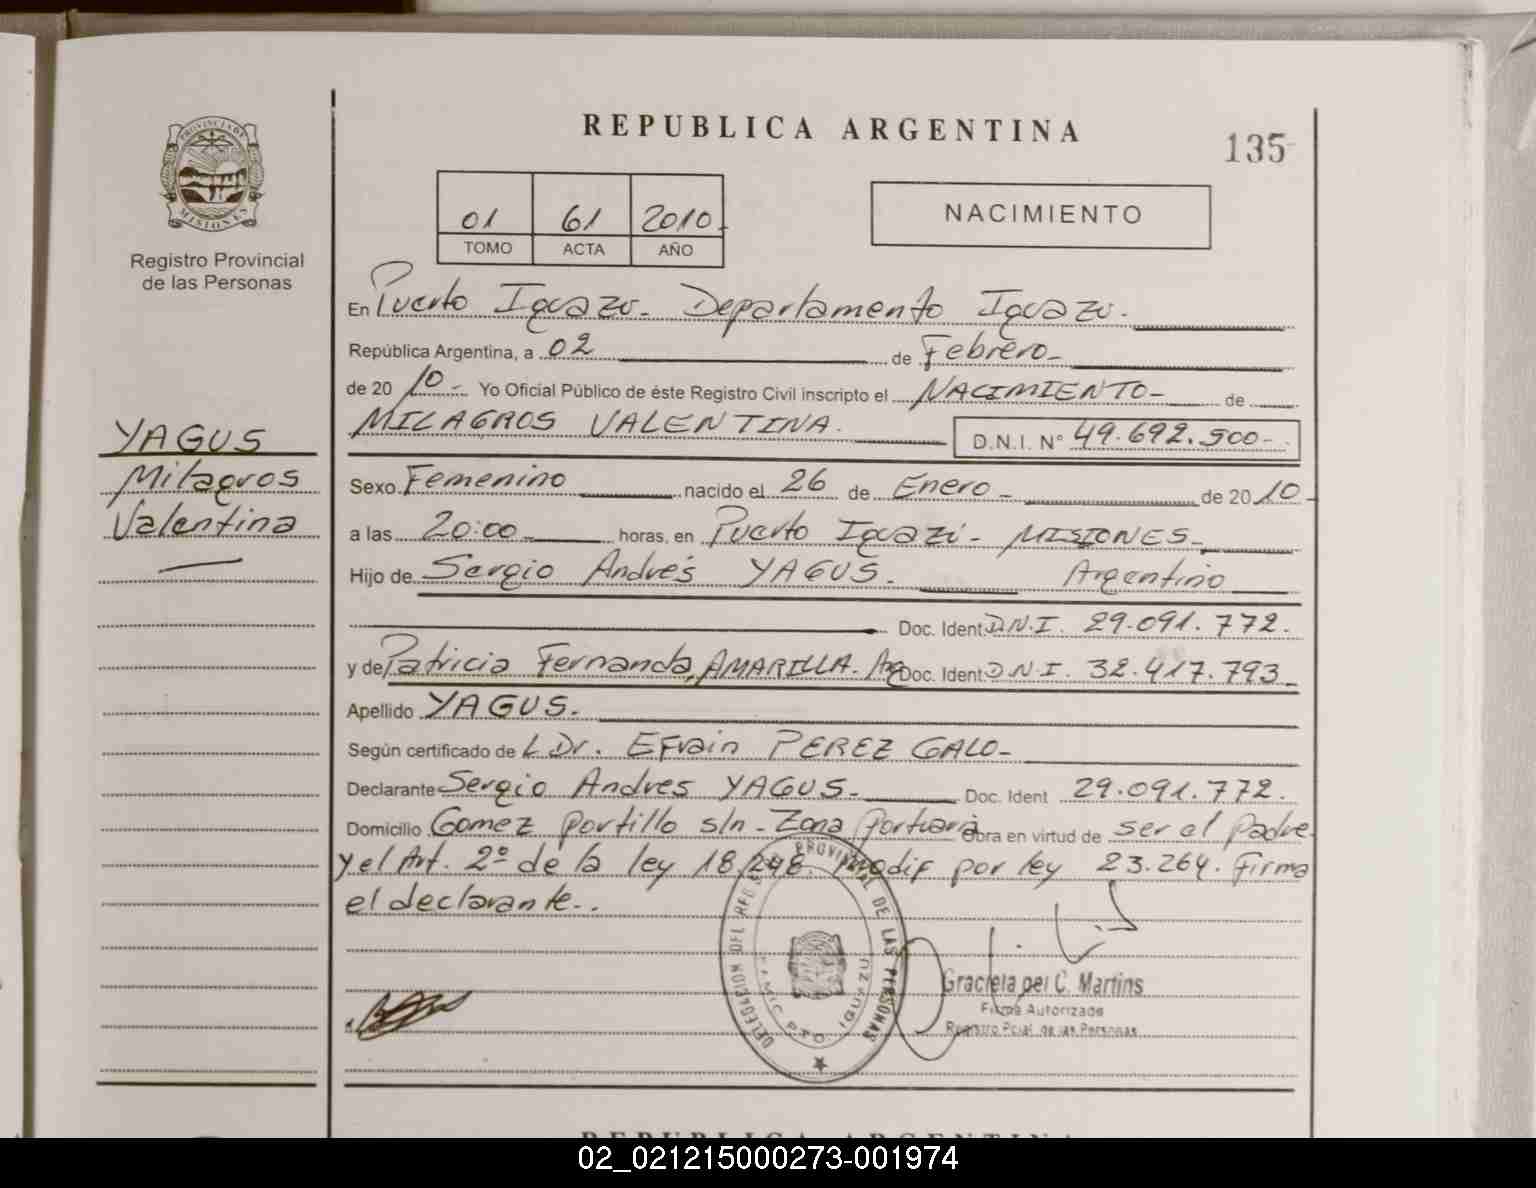 REPUBLICA ARGENTINA
135
PROVINCIA DE
MISIONES
Registro Provincial
de las Personas
01 61 2010
TOMO ACTA AÑO
NACIMIENTO
En Puerto Iguazu- Departamento Iguazu.
República Argentina, a 02 de Febrero-
de 20 10- Yo Oficial Público de éste Registro Civil inscripto el NACIMIENTO- de
MILAGROS VALENTINA. D.N.I. N° 49.692.900-
YAGUS
Milagros
Valentina
Sexo Femenino nacido el 26 de Enero- de 20 10-
a las 20:00 horas, en Puerto Iguazú- MISIONES-
Hijo de Sergio Andrés YAGUS. Argentino
Doc. Ident. D.N.I. 29.091.772.
y de Patricia Fernanda, AMARILLA. Arg Doc. Ident. D.N.I. 32.417.793-
Apellido YAGUS.
Según certificado de L Dr. Efrain PEREZ GALO-
Declarante Sergio Andres YAGUS- Doc. Ident 29.091.772.
Domicilio Gomez portillo s/n- Zona Portuaria Obra en virtud de ser el padre
y el Art. 2º de la ley 18.248. Modif por ley 23.264. Firma
el declarante..
DELEGACION DEL REG PROVINCIAL DE LAS PERSONAS
PTO. IGUAZU
Graciela del C. Martins
Firma Autorizada
Registro Pcial. de las Personas
REPUBLICA ARGENTINA
02_021215000273-001974